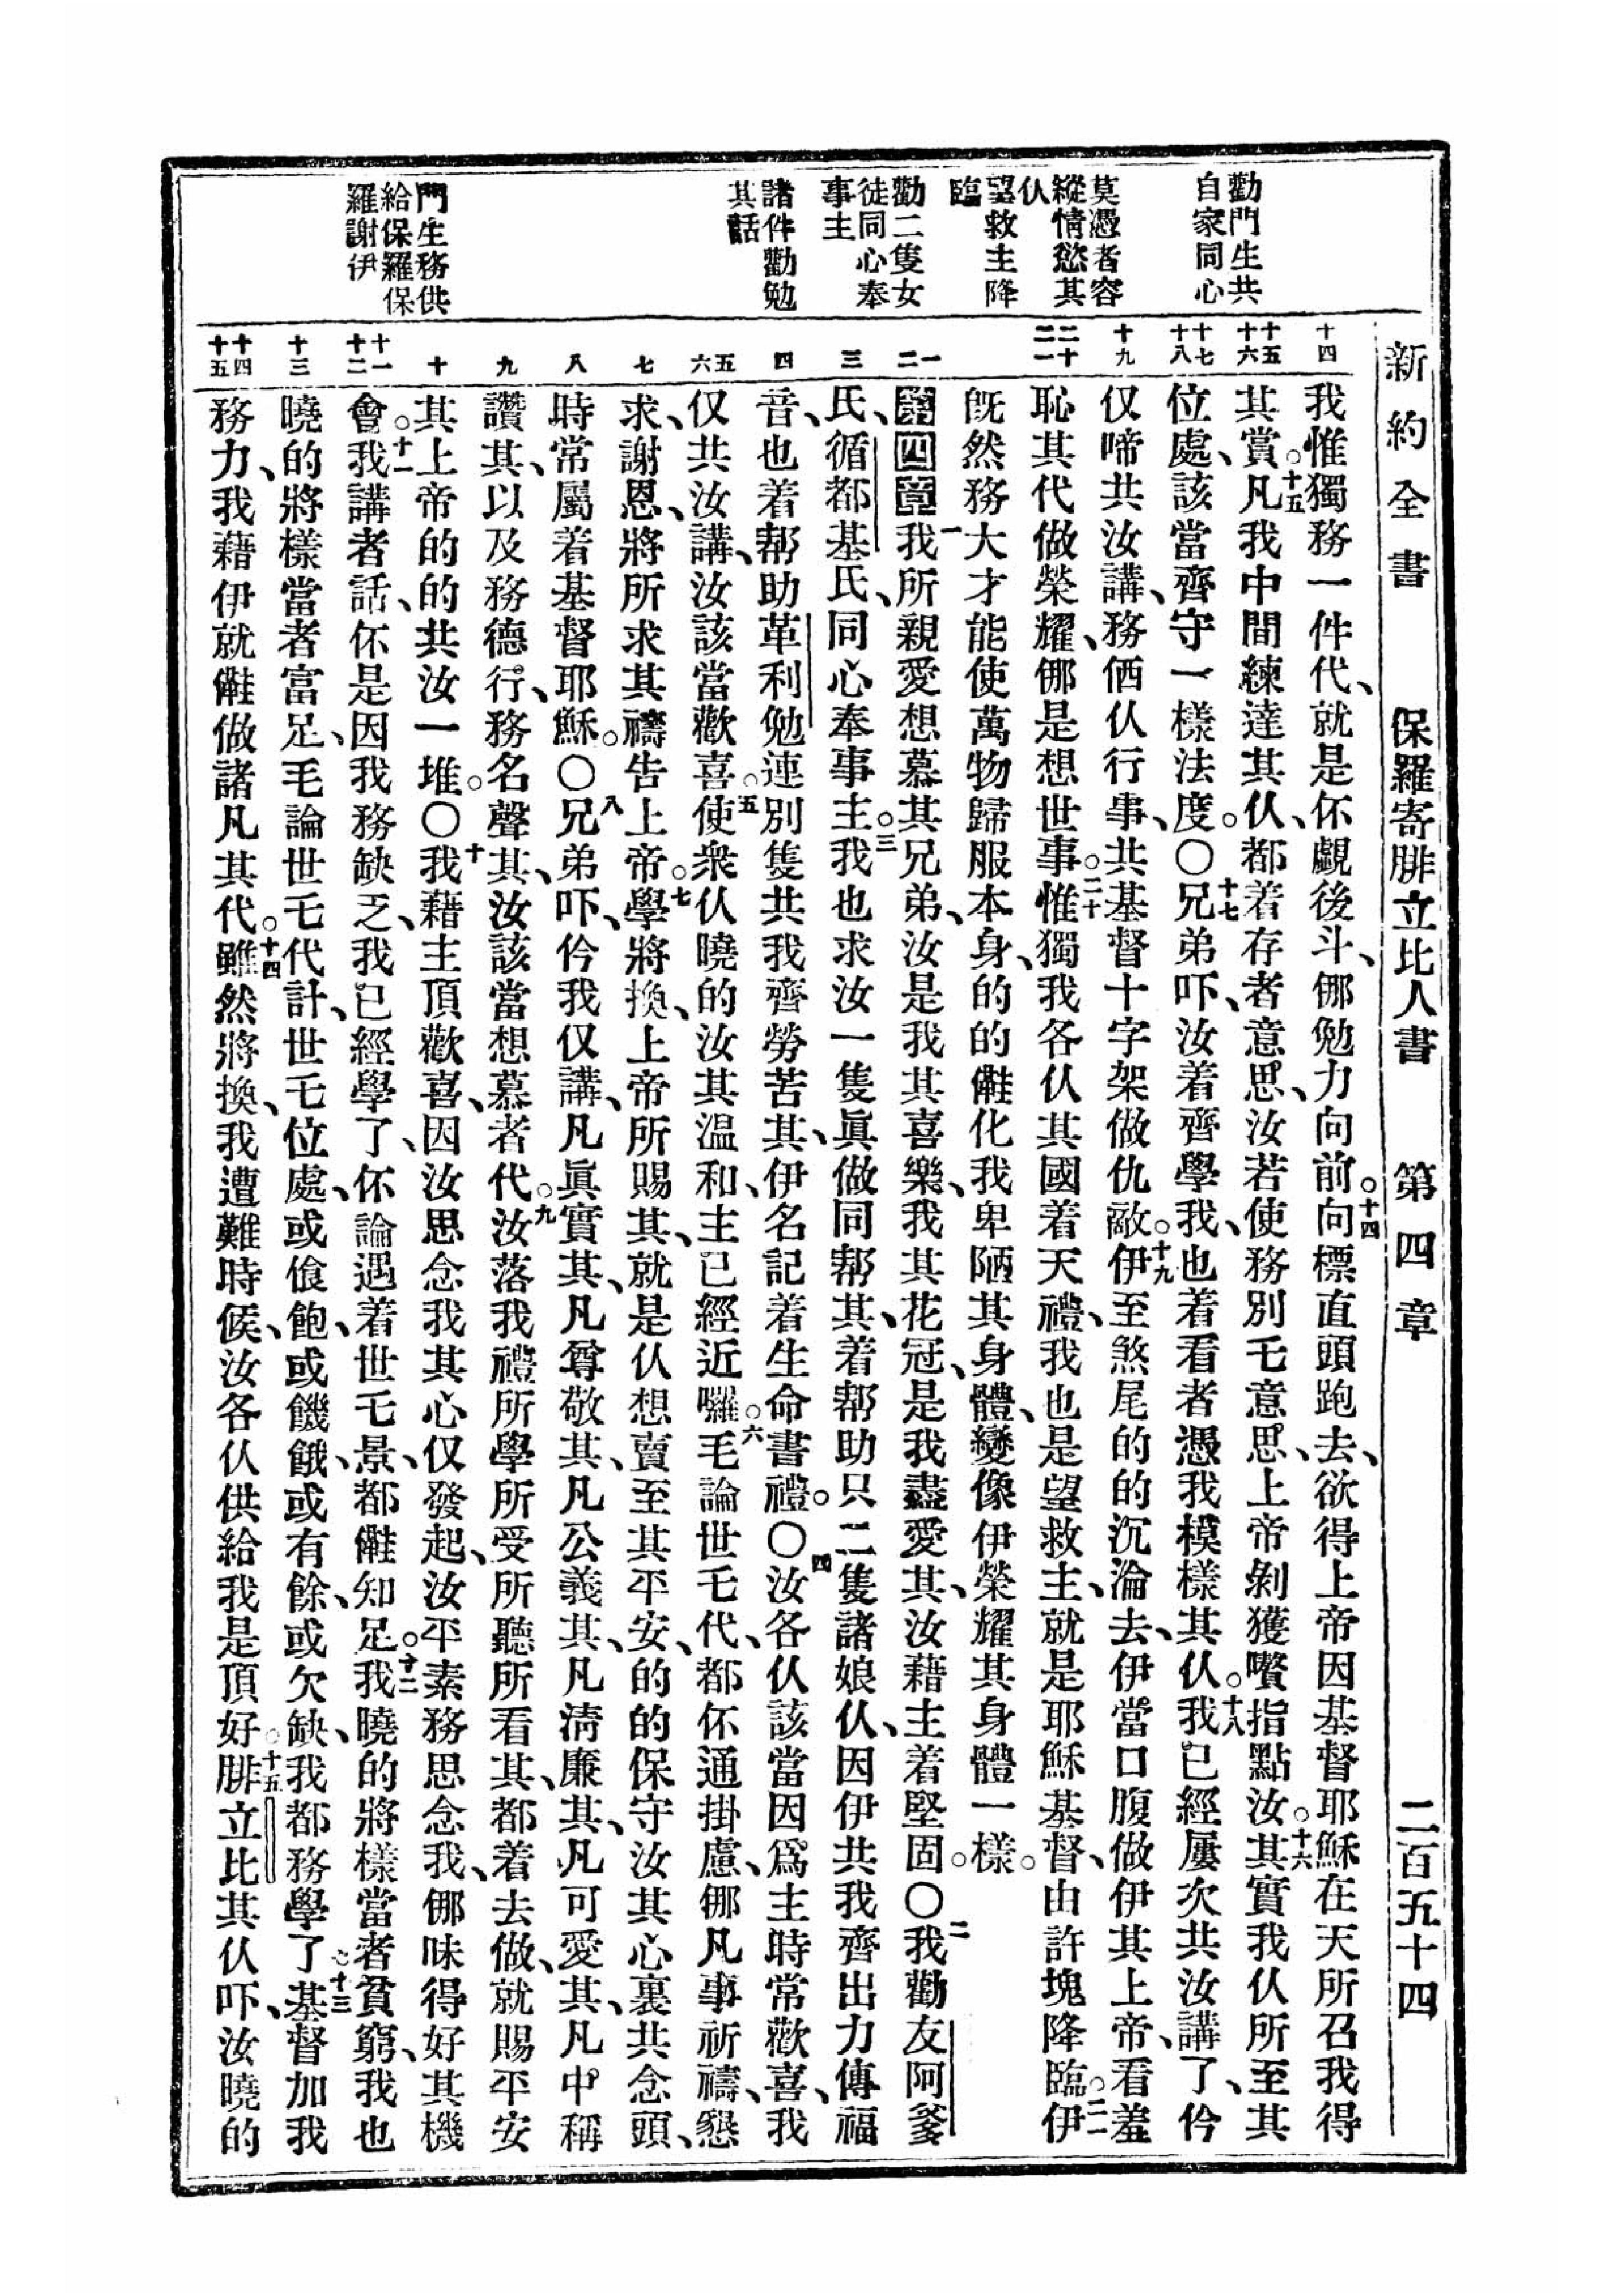 新約全書　保羅寄腓立比人書　第四章　二百五十四
勸門生共
自家同心
莫憑者容
縱情慾其
仈
望救主降
臨
勸二隻女
徒同心奉
事主
諸件勸勉
其話
門生務供
給保羅保
羅謝伊
十四
我惟獨務一件代、就是伓覷後斗、䣝勉力向前。十四向標直頭跑去、欲得上帝因基督耶穌在天所召我得
十五
十六
其賞。十五凡我中間練達其仈、都着存者意思、汝若使務別乇意思、上帝剝獲囋指點汝。十六其實我仈所至其
十七
十八
位處、該當齊守一樣法度。〇十七兄弟吓、汝着齊學我、也着看者憑我模樣其仈。十八我已經屢次共汝講了、仱
十九
仅啼共汝講、務𠉂仈行事、共基督十字架做仇敵。十九伊至煞尾的的沉淪去、伊當口腹做伊其上帝、看羞
二十
二一
恥其代做榮耀、䣝是想世事。二十惟獨我各仈其國着天禮、我也是望救主、就是耶穌基督、由許塊降臨。二一伊
旣然務大才能使萬物歸服本身、的的𠍾化我卑陋其身體、變像伊榮耀其身體一樣。
一
二
第四章一我所親愛想慕其兄弟、汝是我其喜樂、我其花冠、是我盡愛其、汝藉主着堅固。〇二我勸友阿爹
三
氏、循都基氏、同心奉事主。三我也求汝一隻眞做同帮其、着帮助只二隻諸娘仈、因伊共我齊出力傳福
四
音、也着帮助革利勉連別隻共我齊勞苦其、伊名記着生命書禮。〇四汝各仈該當因爲主時常歡喜、我
五
六
仅共汝講、汝該當歡喜。五使衆仈曉的汝其溫和、主已經近囉。六乇論世乇代、都伓通掛慮、䣝凡事祈禱、懇
七
求、謝恩、將所求其禱告上帝。七學將換、上帝所賜其、就是仈想賣至其平安、的的保守汝其心裏共念頭、
八
時常屬着基督耶穌。〇八兄弟吓、仱我仅講、凡眞實其、凡尊敬其、凡公義其、凡淸廉其、凡可愛其、凡中稱
九
讚其、以及務德行、務名聲其、汝該當想慕者代。九汝落我禮所學所受、所聽所看其、都着去做、就賜平安
十
其上帝的的共汝一堆。〇十我藉主頂歡喜、因汝思念我其心仅發起、汝平素務思念我、䣝味得好其機
十一
十二
會。十一我講者話、伓是因我務缺乏、我已經學了、伓論遇着世乇景、都𠍾知足。十二我曉的將樣當者貧窮、我也
十三
曉的將樣當者富足、乇論世乇代計、世乇位處、或飽、或饑餓、或有餘、或欠缺、我都務學了。十三基督加我
十四
十五
務力、我藉伊就𠍾做諸凡其代。十四雖然將換、我遭難時候、汝各仈供給我是頂好。十五腓立比其仈吓、汝曉的